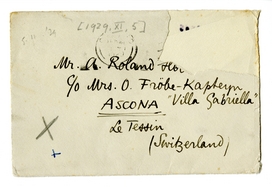 [1929, XI, 5]
Mr. A. Roland
c/o Mrs. O. Fröbe-Kapteyn
"Villa Gabriella"
ASCONA
Le Tessin
(Switzerland)